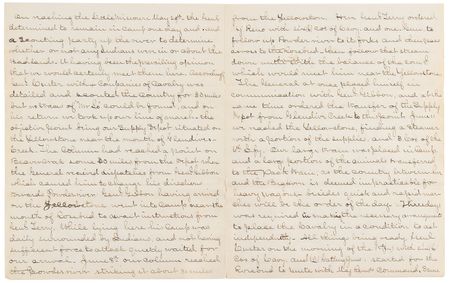 On reaching the Little Missouri May 29th the Genl
determined to remain in Camp one day and send
a Scouting party up the river to determine
whether or not any Indians were in or about the
Bad lands. It having been the prevailing opinion
that we would certainly meet them here. Accordingly
Genl Custer with 4 Companies of Cavalry was
detailed and scouted the Country for 20 miles
but no traces of "Mr Lo" could be found, and on
his return we took up our line of march, the
objective point being our Supply Depot situated on
the Yellowstone near the mouth of Glendive
Creek. The Column had reached a point on
Beaver Creek some 30 miles from the Depot when
the General received dispatches from Genl Gibbon
which caused him to change his direction
Genl Gibbon having arrived
on the Yellowstone went into Camp near the
mouth of Rosebud to await instructions from
Genl Terry. While lying here his Camp was
daily surrounded by Indians and not being
sufficient force to attack them, waited for
our arrival. June 8th our Column reached
the Powder river striking it about 20 miles
from the Yellowstone. Here Genl Terry ordered
Maj Reno with six Cos of Cavy. and one Gun to
follow up Powder river to its forks and then pass
across to the Rosebud, then follow that stream
down until the balance of the Comd
which would meet him near the Yellowstone
The General at once placed himself in
communication with Genl Gibbon, and at the
same time ordered the transfer of the Supply
Depot from Glendive Creek to the point
we reached the Yellowstone, finding a steamer
with a portion of the supplies and 3 Cos of the
6th Infy. Our large train was placed in Camp
and a large portion of the animals transferred
to the Pack train, as the Country between in
and the Bighorn is deemed impracticable for
heavy wagons, besides quick and rapid
will be the order of the day. Three days
was required in making the necessary arrangements
to place the Cavalry in a condition to act
independently. All things being ready, Genl
Custer on the morning of the with six
Cos of Cavy. and started for the
Rosebud to Unite with Maj Reno's Command,